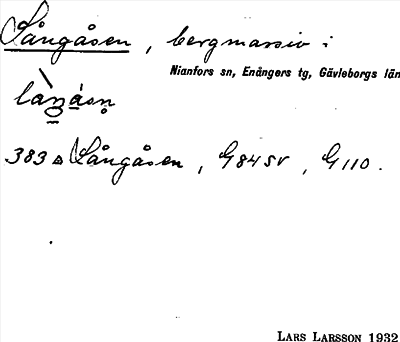 Långåsen, bergmassiv i
Nianfors sn, Enångers tg, Gävleborgs län
lanåsn
383 Δ Långåsen, G84SV, G110.
LARS LARSSON 1932